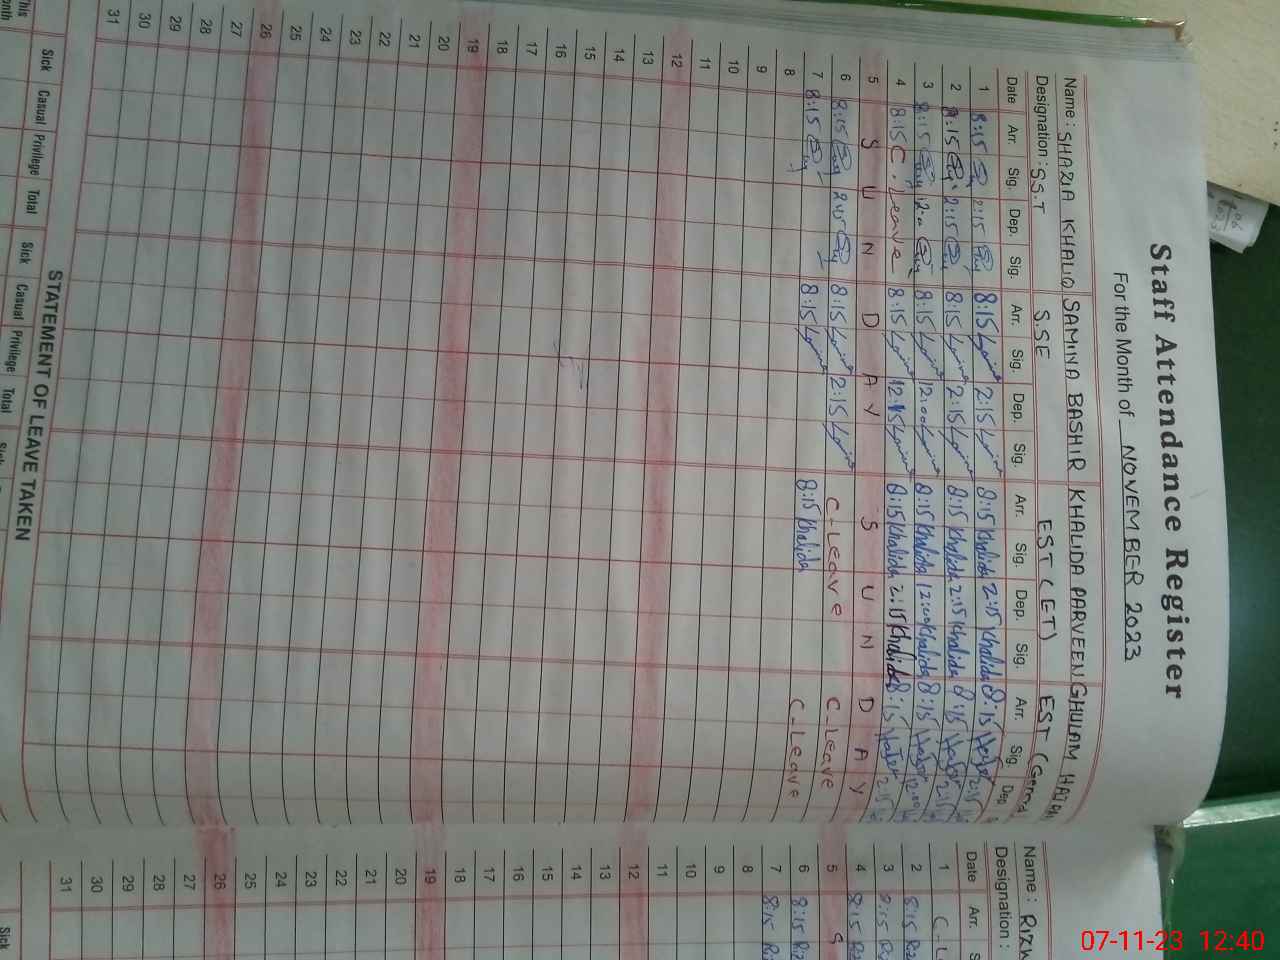 Staff Attendance Register
For the Month of NOVEMBER 2023
Name : SHAZIA KHALIQ SAMINA BASHIR KHALIDA PARVEEN GHULAM
Designation : S.S.T S.SE EST (ET) EST (
Date Arr. Sig. Dep. Sig. Arr. Sig. Dep. Sig. Arr. Sig. Dep. Sig. Arr. Sig. Dep
1 8:15 2:15 8:15 2:15 8:15 Khalida 2:15 Khalida 8:15 2:15
2 8:15 2:15 8:15 2:15 8:15 Khalida 2:15 Khalida 8:15 2:15
3 8:15 12:00 8:15 12:00 8:15 Khalida 12:00 Khalida 8:15 12:00
4 8:15 C. Leave 8:15 12:15 8:15 Khalida 2:15 Khalida 8:15 2:15
5 S U N D A Y S U N D A Y
6 8:15 2:15 8:15 2:15 C-Leave C-Leave
7 8:15 8:15 8:15 Khalida C-Leave
8
9
10
11
12
13
14
15
16
17
18
19
20
21
22
23
24
25
26
27
28
29
30
31
STATEMENT OF LEAVE TAKEN
Sick Casual Privilege Total Sick Casual Privilege Total Sick
This
Name : RIZW
Designation :
Date Arr.
1 C-L
2 8:15
3 8:15
4 8:15
5 S
6 8:15
7 8:15
8
9
10
11
12
13
14
15
16
17
18
19
20
21
22
23
24
25
26
27
28
29
30
31
Sick
07-11-23 12:40